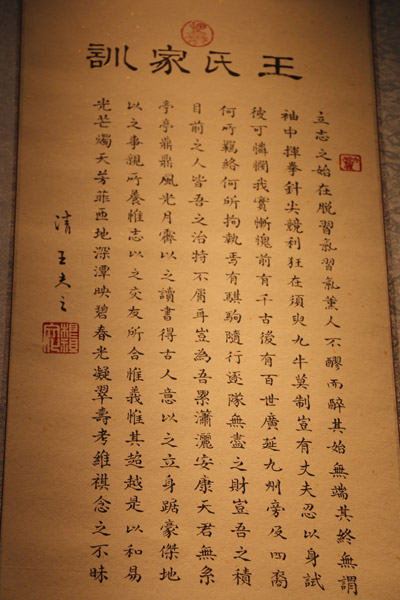 王氏家訓
立志之始在脱習氣習氣薰人不醪而醉其始無端其終無謂
袖中揮拳針尖競利狂在須臾九牛莫制豈有丈夫忍以身試
彼可憐憫我實慚媿前有千古後有百世廣延九州旁及四裔
何所羈絡何所拘執焉有騏駒隨行逐隊無盡之財豈吾之積
目前之人皆吾之治特不屑耳豈為吾累瀟灑安康天君無系
亭亭鼎鼎風光月霽以之讀書得古人意以之立身踞豪傑地
以之事親所養惟志以之交友所合惟義惟其超越是以和易
光芒燭天芳菲匝地深潭映碧春光凝翠壽考維祺念之不昧
清 王夫之